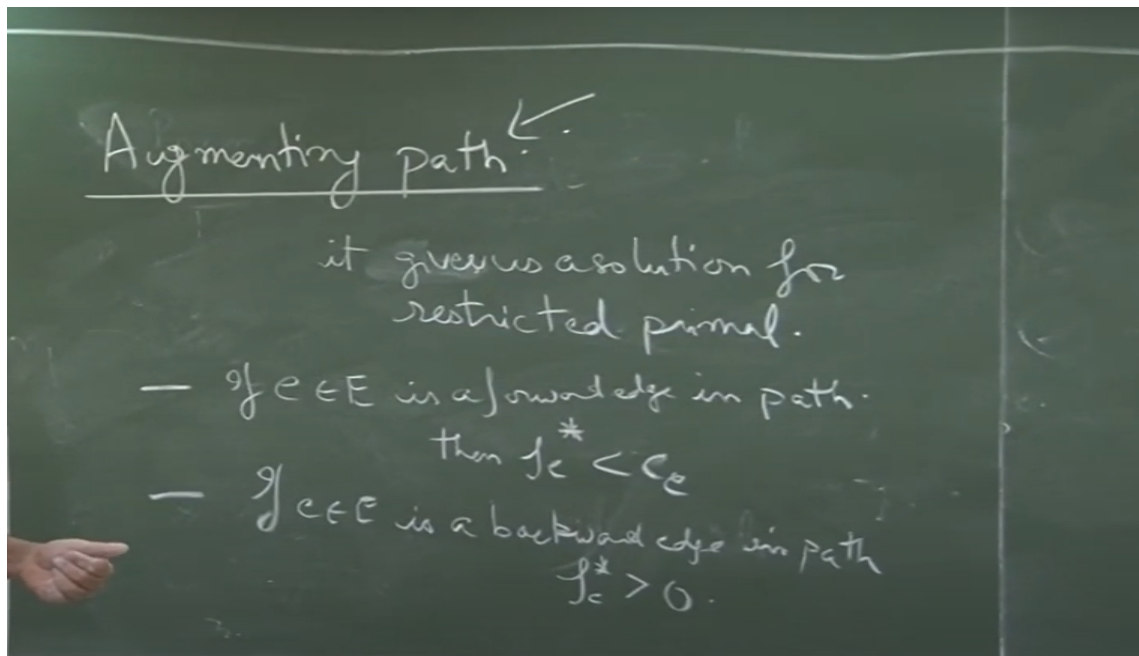 Augmenting path.
it gives us a solution for
restricted primal.
— If e ∈ E is a forward edge in path.
then f_e^* < c_e
— If e ∈ E is a backward edge in path
f_e^* > 0.